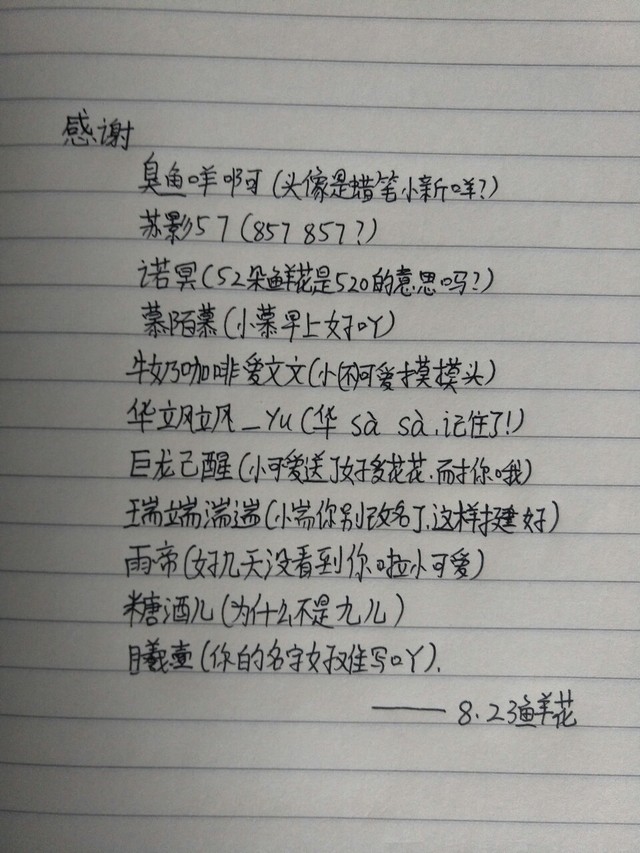 感谢
臭鱼咩啊(头像是蜡笔小新咩?)
苏影57(857 857?)
诺冥(52朵鲜花是520的意思吗?)
慕陌慕(小慕早上好吖)
牛奶咖啡爱文文(小可爱摸摸头)
华飒飒_Yu(华 sà sà.记住了!)
巨龙已醒(小可爱送了好多花花.耐你哦)
瑞端湍遄(小耑你别改名了,这样挺好)
雨帝(好几天没看到你啦小可爱)
糖酒儿(为什么不是九儿)
曦壹(你的名字好难写吖).
——8.23鲜花